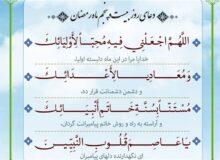 دعای روز بیست و پنجم ماه رمضان
اللَّهُمَّ اجْعَلْنِي فِيهِ مُحِبًّا لِأَوْلِيَائِكَ
خدایا مرا در این ماه دلبسته اولیا،
وَمُعَادِيًا لِأَعْدَائِكَ
و دشمن دشمنانت قرار ده،
مُسْتَنًّا بِسُنَّةِ خَاتَمِ أَنْبِيَائِكَ
و آراسته به راه و روش خاتم پیامبرانت گردان،
يَا عَاصِمَ قُلُوبِ النَّبِيِّينَ
ای نگهدارنده دلهای پیامبران